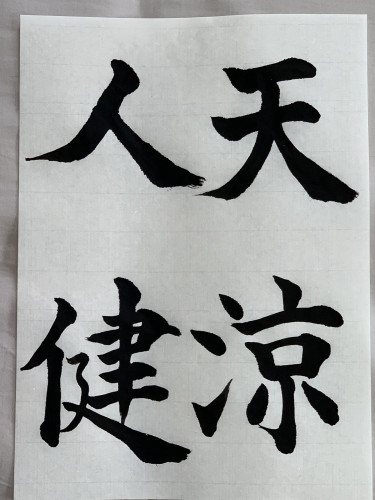 天涼
人健